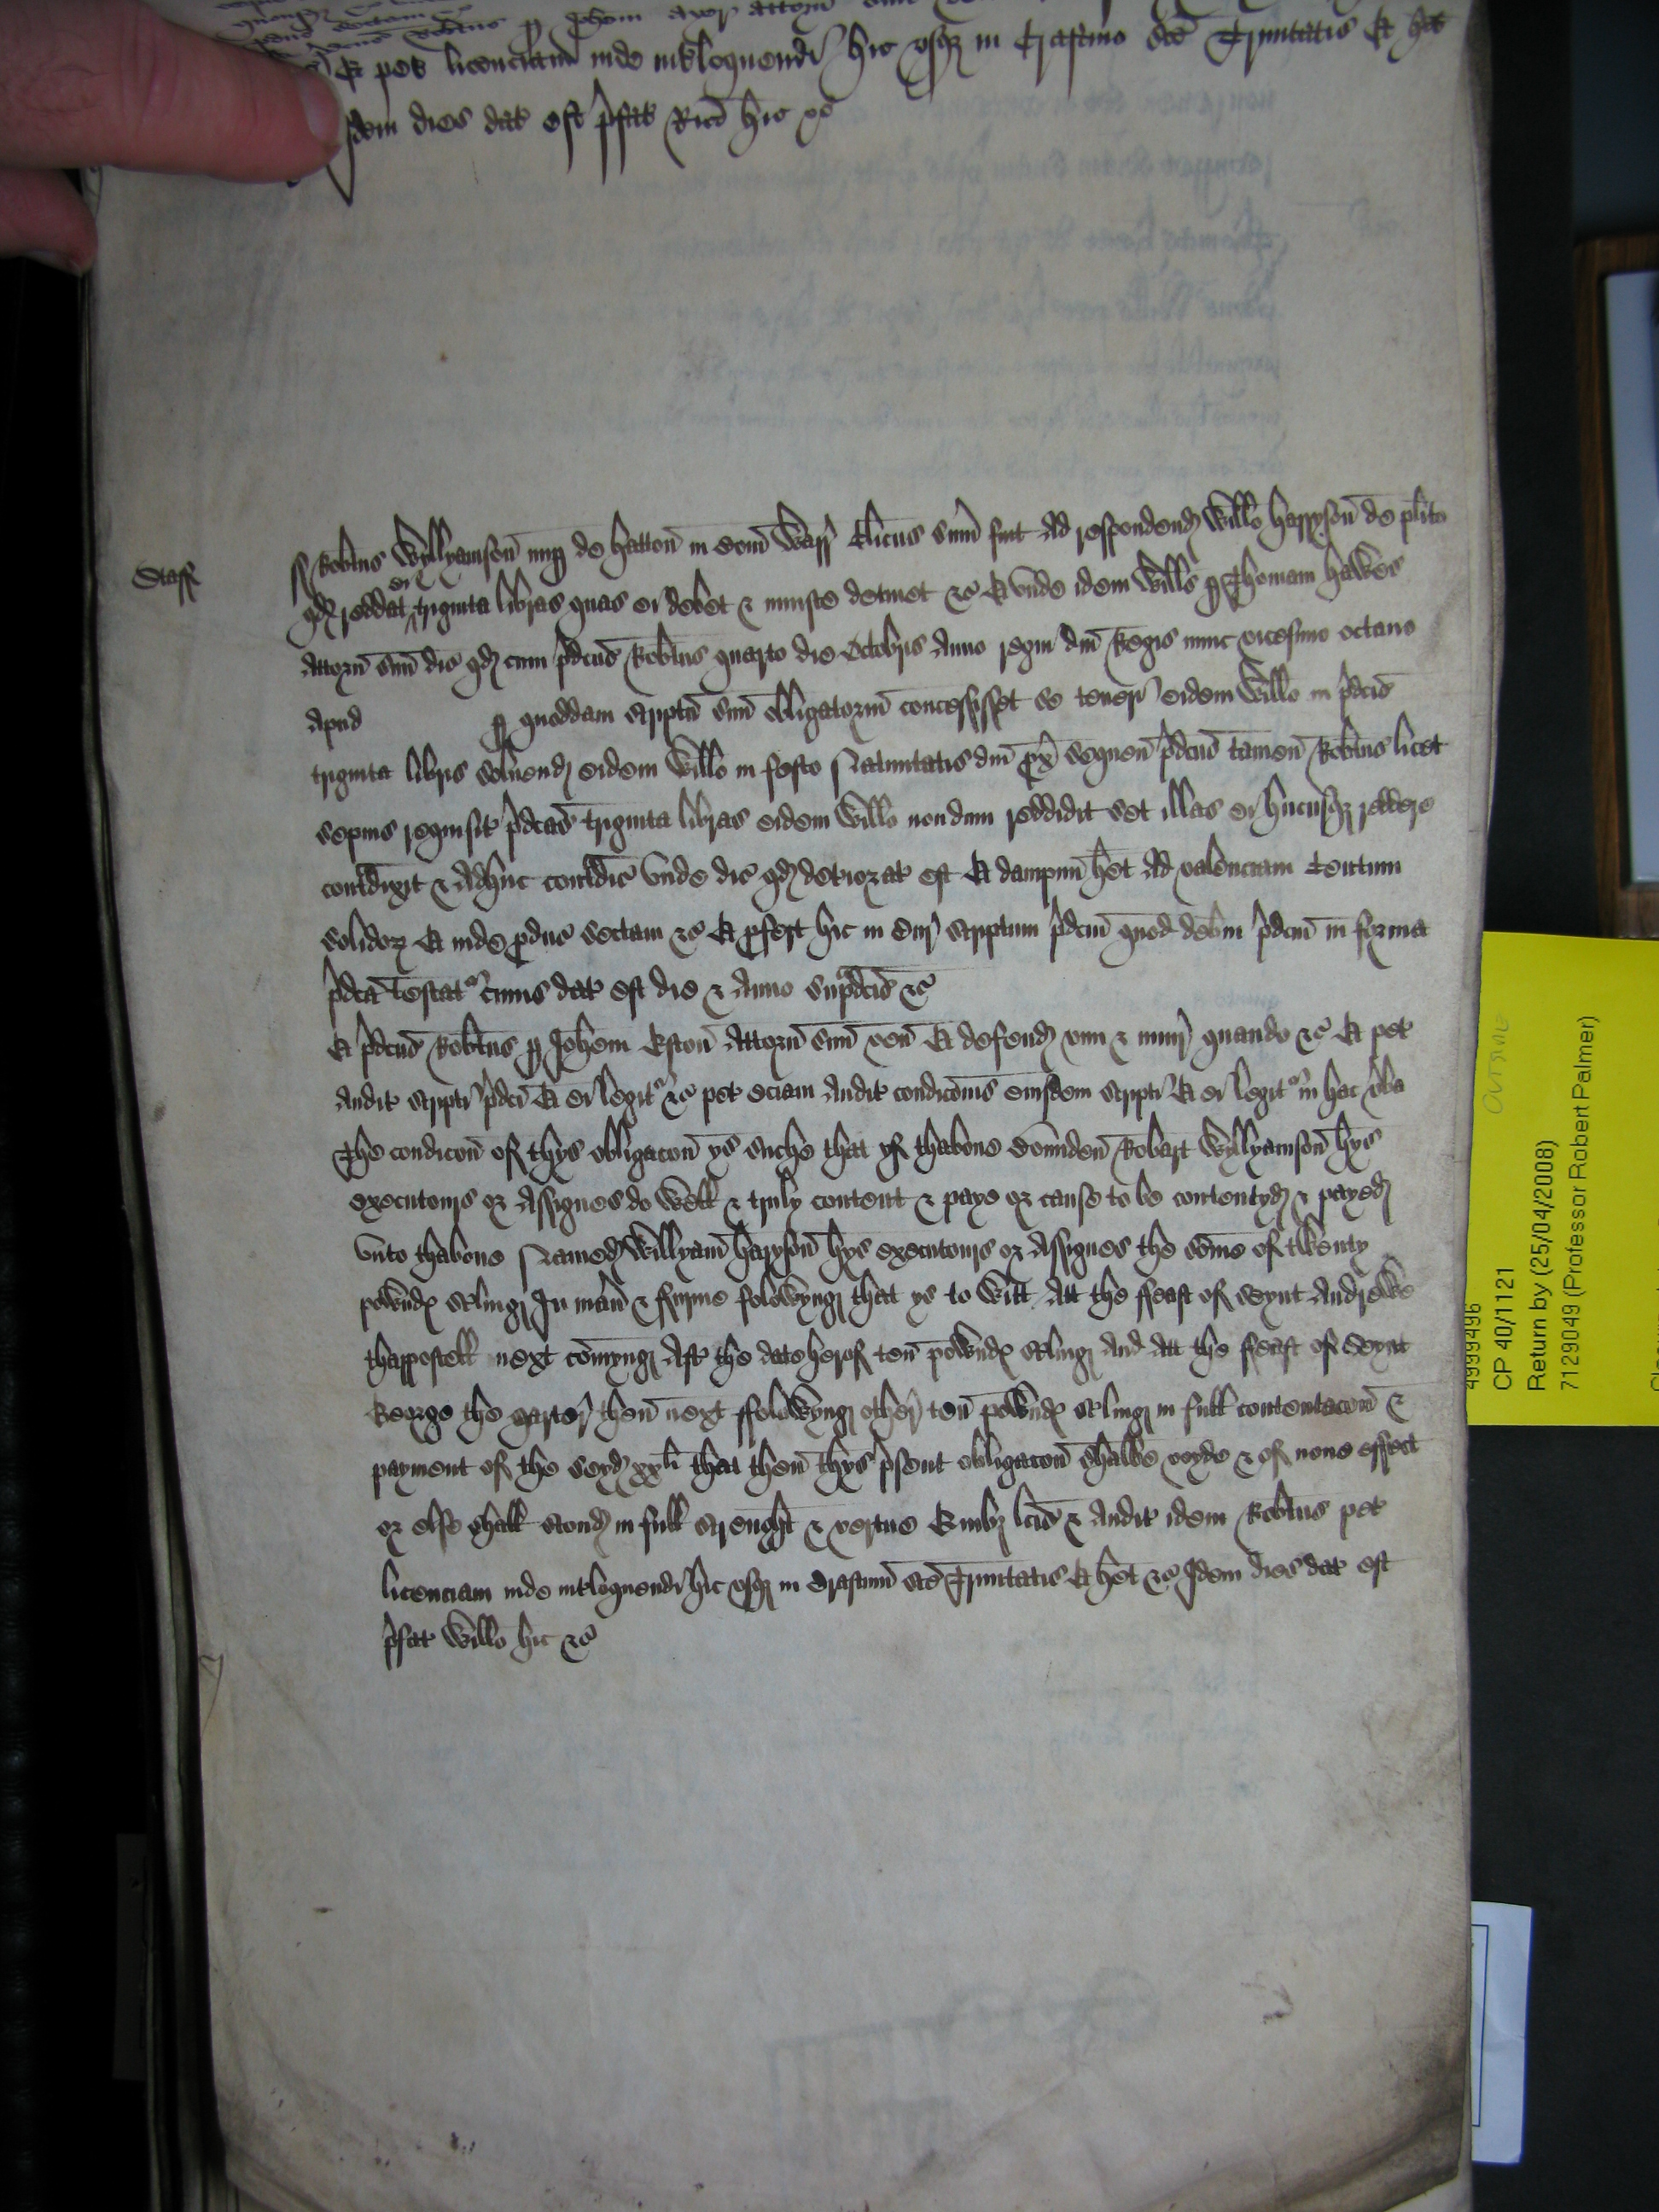 Et pet licenciam inde int̄loquendi hic usq3 in Crastino sc̄e Trinitatis Et h̄et
dem dies dat est p̄fat Ric̄o hic &c̄
Staff
Rob̄tus Wyllyamson nup de Hatton in Com̄ Warr Cl̄icus sum̄ fuit ad respondend Will̄o Harryson de pl̄ito
qd reddat ei triginta libras quas ei debet & iniuste detinet &c̄ Et unde idem Will̄s p Thomam Hawes
Attorn̄ suu dic̄ qd cum p̄dc̄us Rob̄tus quarto die Octobris Anno regni dn̄i Regis nunc vicesimo octavo
apud p quoddam scriptu suu obligatorium concessisset se teneri eidem Will̄o in p̄dc̄is
triginta libris solvend eidem Will̄o in festo Nativitatis dn̄i px̄ sequen̄ p̄dc̄us tamen Rob̄tus licet
sepius requisit p̄dc̄as triginta libras eidem Will̄o nondum reddidit set illas ei hucusq3 reddere
contradixit & adhuc contradic̄ Unde dic̄ qd deteriorat est Et dampnu h̄et ad valenciam Centum
solidor Et inde pduc̄ sectam &c̄ Et pfert hic in Cur̄ scriptum p̄dc̄m quod debitu p̄dc̄m in forma
p̄dc̄a testatr cuius dat est die & Anno sup̄dc̄is &c̄
Et p̄dc̄us Rob̄tus p Joh̄em Eston Attorn̄ suu ven̄ Et defend vim & iniur̄ quando &c̄ Et pet
Audit scripti p̄dc̄i Et ei legitr &c̄ pet eciam Audit condic̄onis eiusdem scripti Et ei legitr in hec v̄ba
The condic̄on of thys obligac̄on ys suche that yf thabove Bounden Robart Wyllyamson hys
executours or Assignes do well & truly content & paye or cause to be contentyd & payed
Unto thabove Named Willyam Haryson hys executours or Assignes the som̄e of twenty
pownds st̄ling In man̄ & fourme folowyng that ys to witt Att the ffeast of seynt Andrewe
thappostell next comyng Aft̄ the date herof ten pownds st̄ling And att the ffeast of Seynt
George the marter then next ffolowyng other ten pownds st̄ling in full contentac̄on &
payment of the seyd xxli that then thys p̄sent obligac̄on shalbe voyde & of none effect
or else shall stond in full strenght & vertue Quib3 lc̄is & Audit idem Rob̄tus pet
licenciam inde int̄loquendi hic usq3 in Crastinu sc̄e Trinitatis Et h̄et &c̄ Idem dies dat est
p̄fat Will̄o hic &c̄
CP 40/1121
Return by (25/04/2008)
7129049 (Professor Robert Palmer)